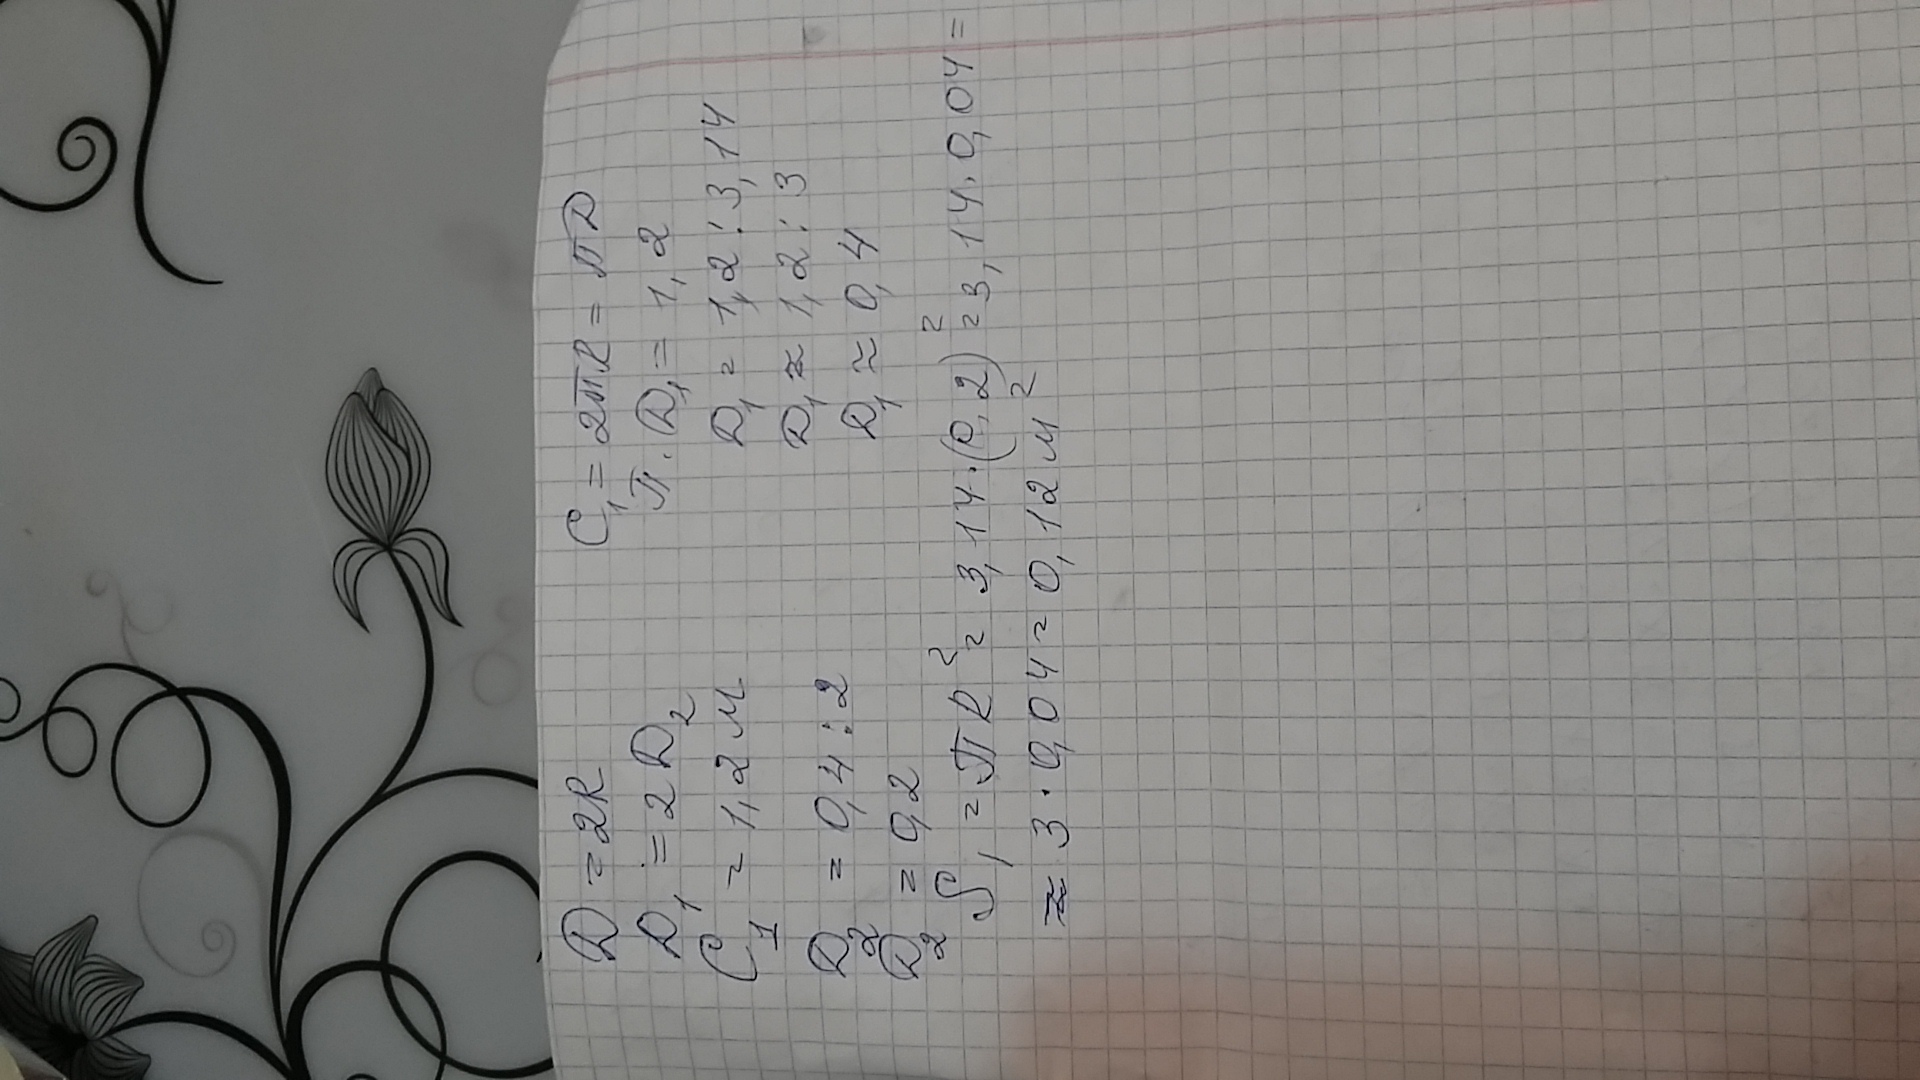 D = 2R
D₁ = 2D₂
C₁ = 1,2 м
D₂ = 0,4 : 2
D₂ = 0,2
C₁ = 2πR = πD
π · D₁ = 1,2
D₁ = 1,2 : 3,14
D₁ ≈ 1,2 : 3
D₁ ≈ 0,4
S₁ = πR² = 3,14 · (0,2)² = 3,14 · 0,04 =
≈ 3 · 0,04 = 0,12 м²